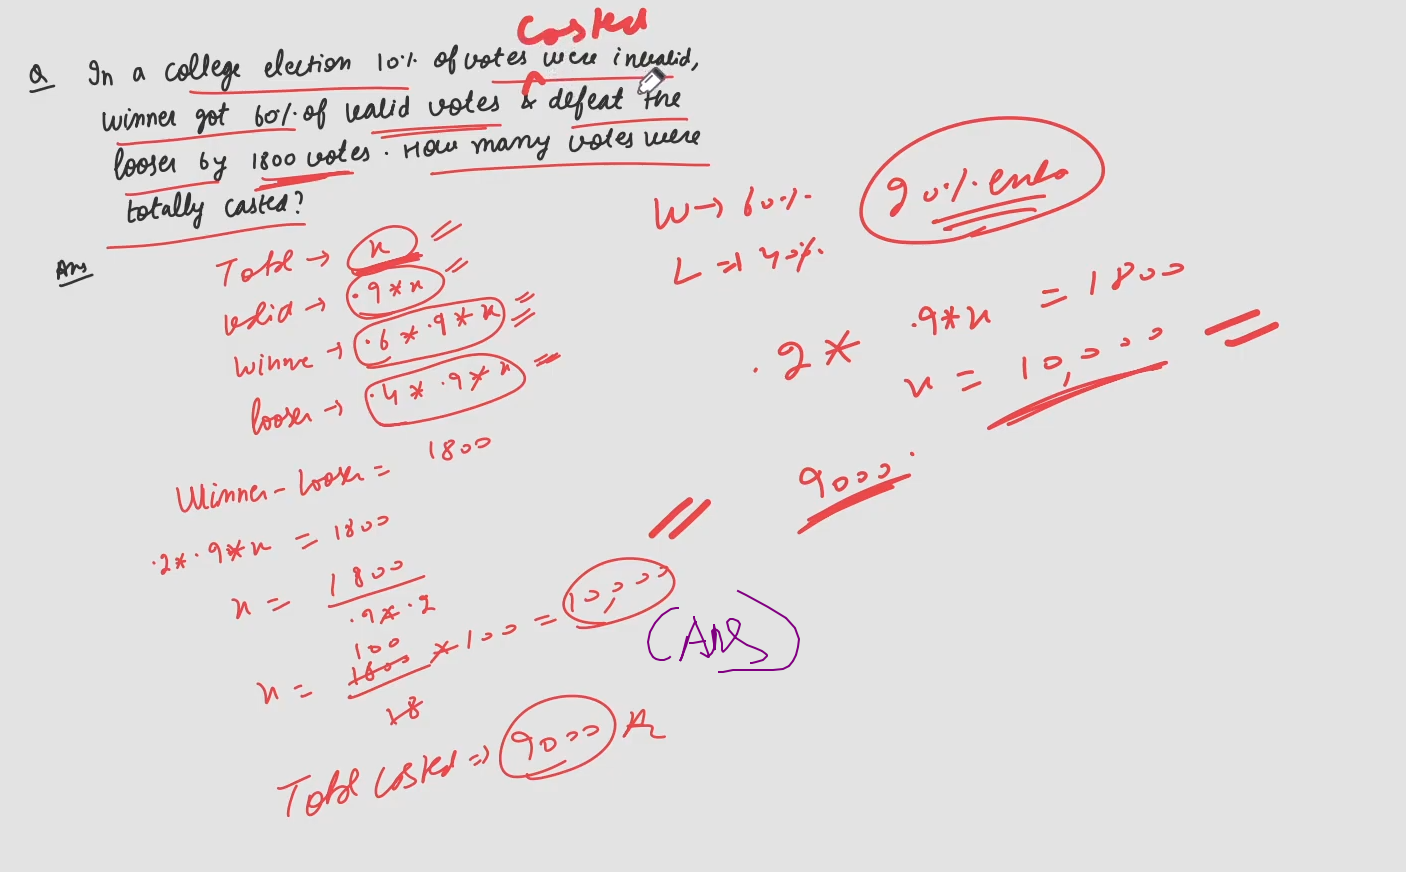 Casted
Q In a college election 10% of votes were invalid,
winner got 60% of valid votes & defeat the
looser by 1800 votes. How many votes were
totally casted?
Ans
Total → x
valid → .9*x
winne → .6*.9*x
looser → .4*.9*x
Winner - looser = 1800
.2*.9*x = 1800
x = 1800
.9*.2
100
x = 1800 * 100 = 10,000
18
Total Casted => 9000
W → 60%
L => 40%
90%
.2* .9*x = 1800
x = 10,000
9000
(Ans)